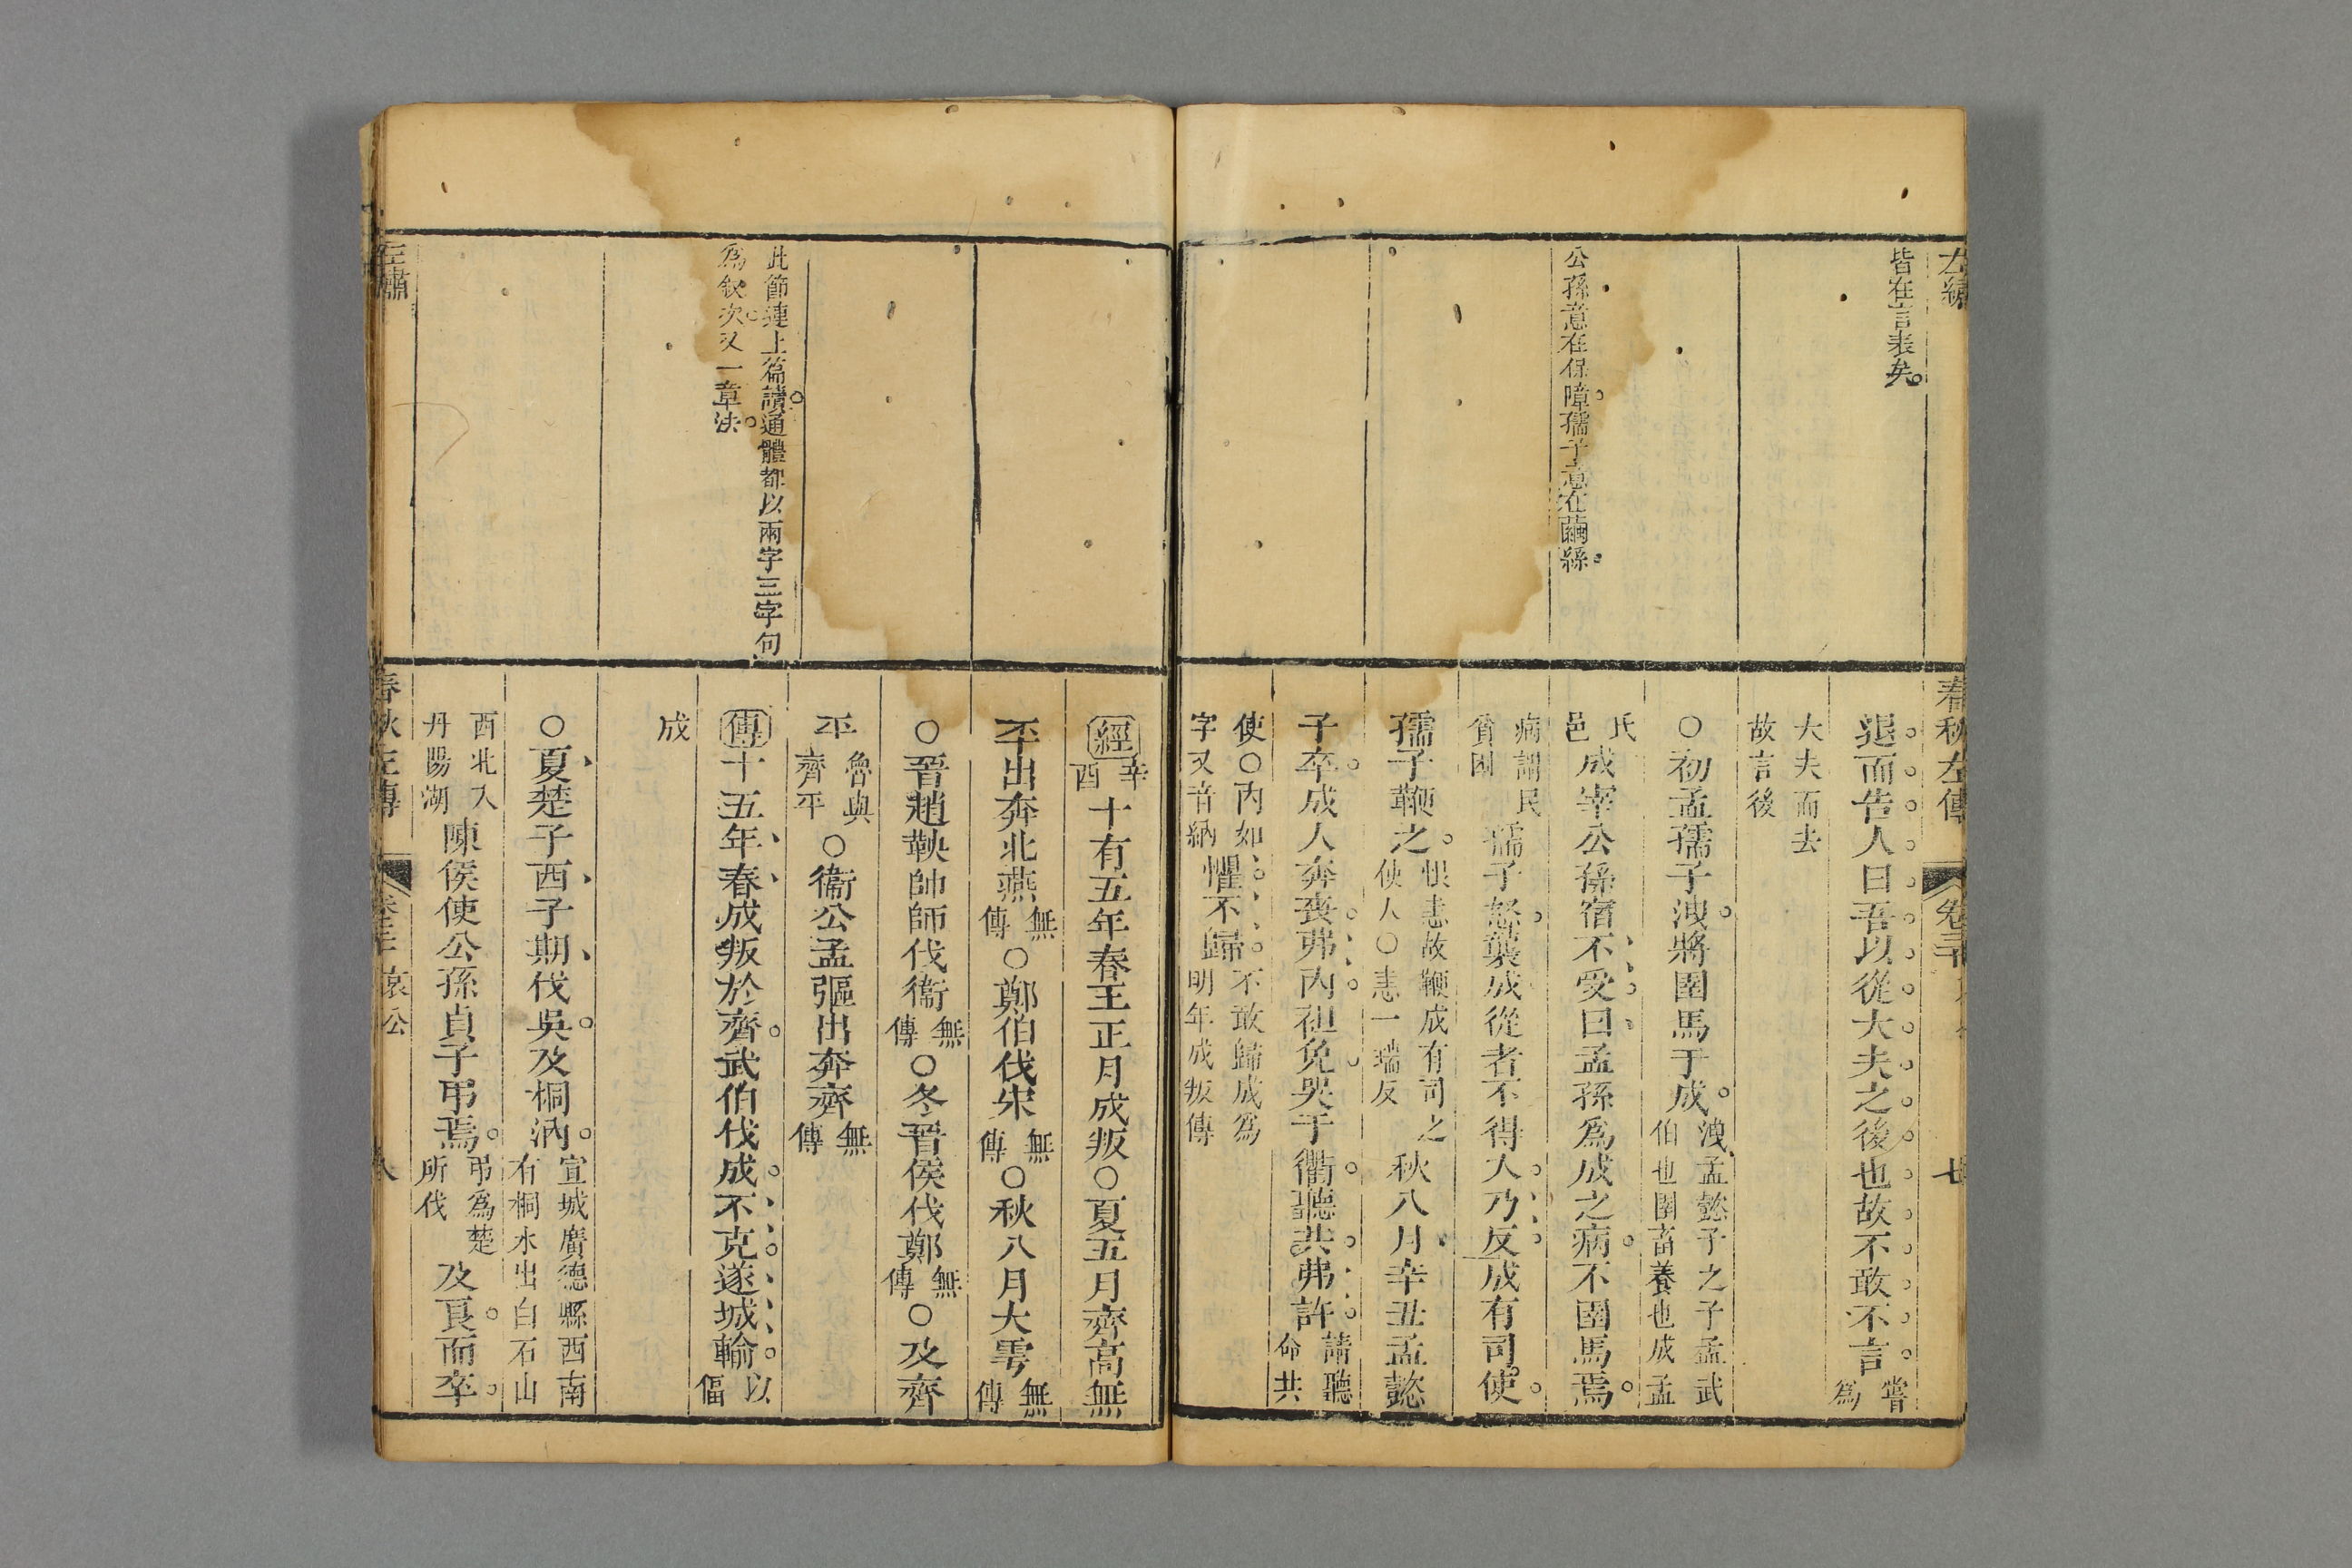 左繡
皆在言表矣
公孫意在保障孺子意在繭絲
春秋左傳
退而告人曰吾以從大夫之後也故不敢不言嘗為
大夫而去故言後
○初孟孺子洩將圉馬于成洩孟懿子之子孟武伯也圉畜養也成孟
氏邑成宰公孫宿不受曰孟孫為成之病不圉馬焉
病謂民貧困孺子怒襲成從者不得入乃反成有司使
孺子鞭之恨恚故鞭成有司之使人○恚一瑞反秋八月辛丑孟懿
子卒成人奔喪弗內袒免哭于衢聽共弗許請聽命共
使○內如字又音納懼不歸不敢歸成為明年成叛傳
此節連上篇讀通體都以兩字三字句
為敘次又一章法
經辛酉十有五年春王正月成叛○夏五月齊高無
㔻出奔北燕無傳○鄭伯伐宋無傳○秋八月大雩無傳
○晉趙鞅帥師伐衞無傳○冬晉侯伐鄭無傳○及齊
平魯與齊平○衞公孟彄出奔齊無傳
傳十五年春成叛於齊武伯伐成不克遂城輸以偪
成
○夏楚子西子期伐吳及桐汭宣城廣德縣西南有桐水出白石山
西北入丹陽湖陳侯使公孫貞子弔焉弔為楚所伐及良而卒
左繡
春秋左傳
哀公